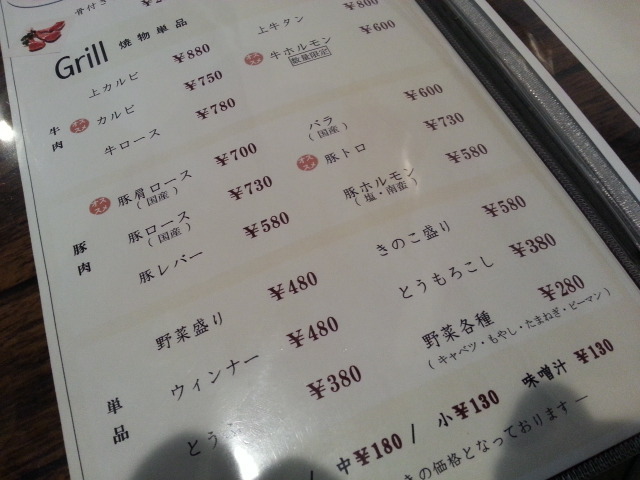 骨付き
Grill 焼物単品
牛肉
上カルビ ¥880
カルビ ¥750
牛ロース ¥780
上牛タン ¥800
牛ホルモン ¥600
数量限定
豚肉
豚肩ロース ¥700
(国産)
豚ロース ¥730
(国産)
豚レバー ¥580
バラ ¥600
(国産)
豚トロ ¥730
豚ホルモン ¥580
(塩・南蛮)
単品
野菜盛り ¥480
ウィンナー ¥480
とう ¥380
きのこ盛り ¥580
とうもろこし ¥380
野菜各種 ¥280
(キャベツ・もやし・たまねぎ・ピーマン)
/ 中¥180 / 小¥130 味噌汁 ¥130
きの価格となっております ー